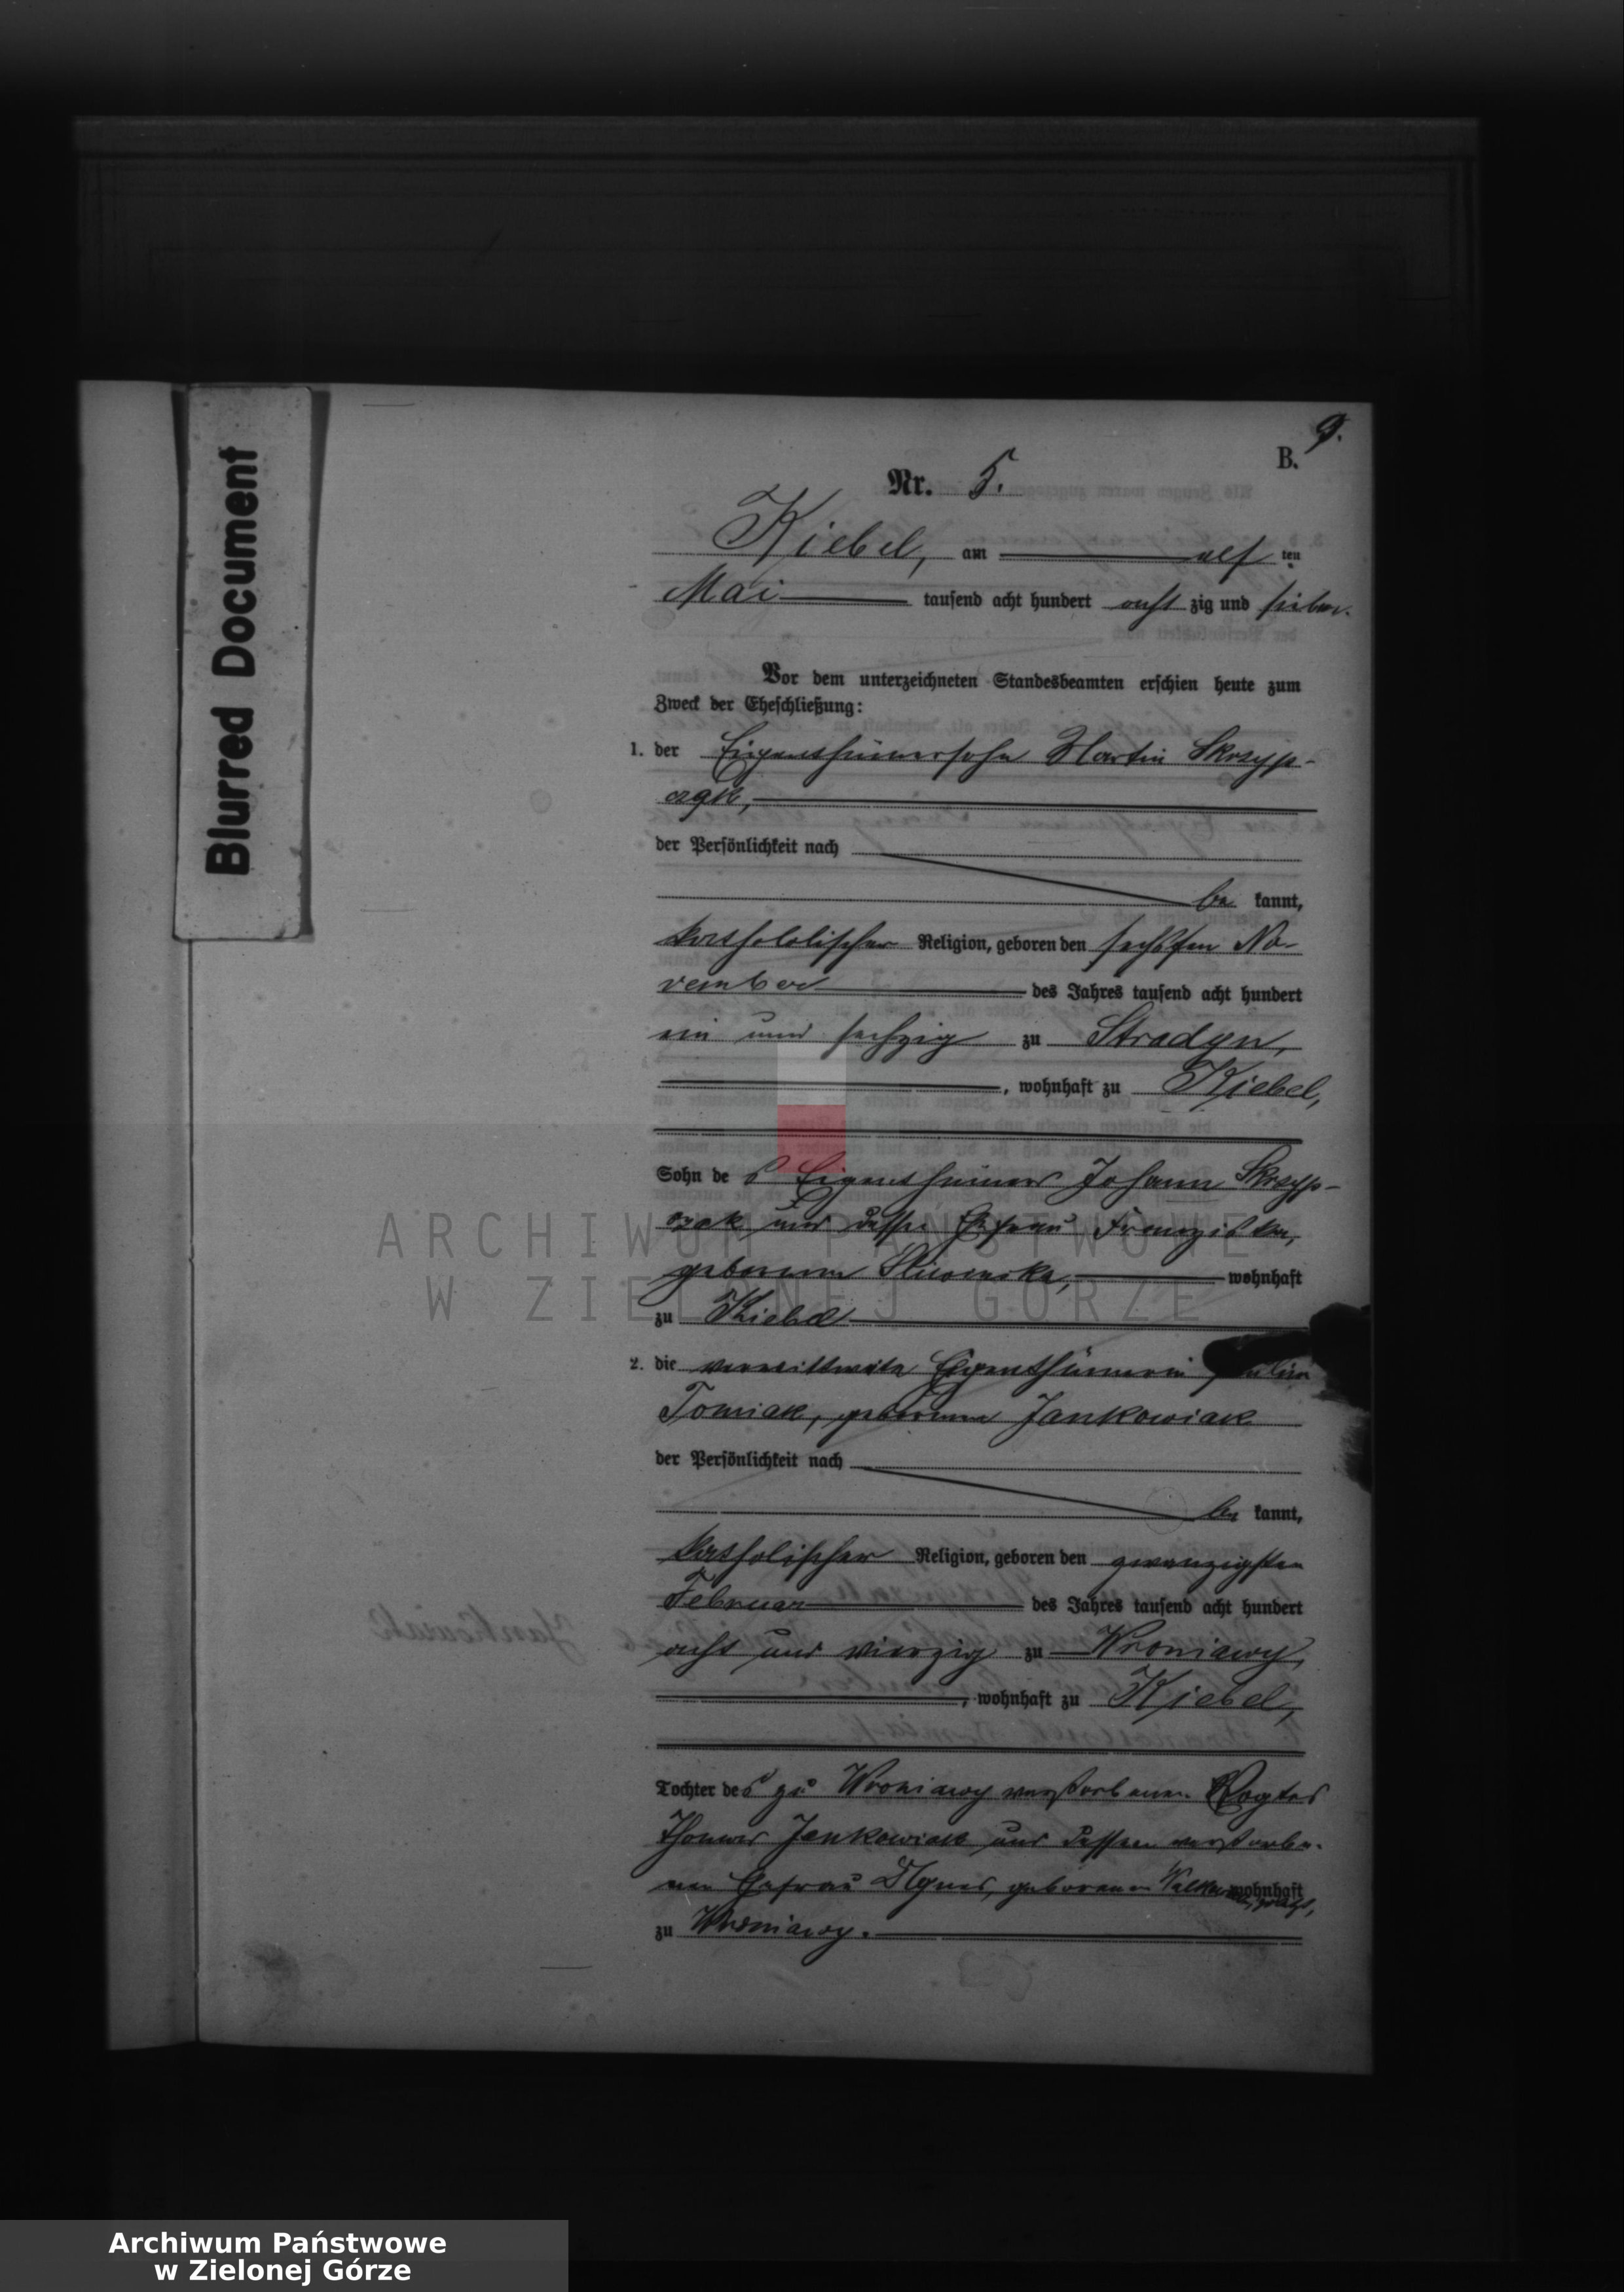 Blurred Document
9.
B.
Nr. 5.
Kiebel, am elf ten
Mai tausend acht hundert acht zig und sieben.
Vor dem unterzeichneten Standesbeamten erschien heute zum
Zweck der Eheschließung:
1. der Eigenthümersohn Martin Skrzyp-
der Persönlichkeit nach
be kannt,
katholischer Religion, geboren den sechsten No-
vember des Jahres tausend acht hundert
ein und sechzig zu Stradyn,
, wohnhaft zu Kiebel,
Sohn des Eigenthümers Johann Skrzyp-
czak und dessen Ehefrau Franziska,
geborenen wohnhaft
zu Kiebel
2. die verwittwete Eigenthümerin
Tomiak, geborene Jankowiak
der Persönlichkeit nach
be kannt,
katholischer Religion, geboren den zwanzigsten
Februar des Jahres tausend acht hundert
acht und vierzig zu Wroniawy,
, wohnhaft zu Kiebel,
Tochter des zu Wroniawy verstorbenen Vogtes
Thomas Jankowiak und dessen verstorbe-
nen Ehefrau Agnes, geborenen wohnhaft
zu Wroniawy.
ARCHIWUM PAŃSTWOWE
W ZIELONEJ GÓRZE
Archiwum Państwowe
w Zielonej Górze